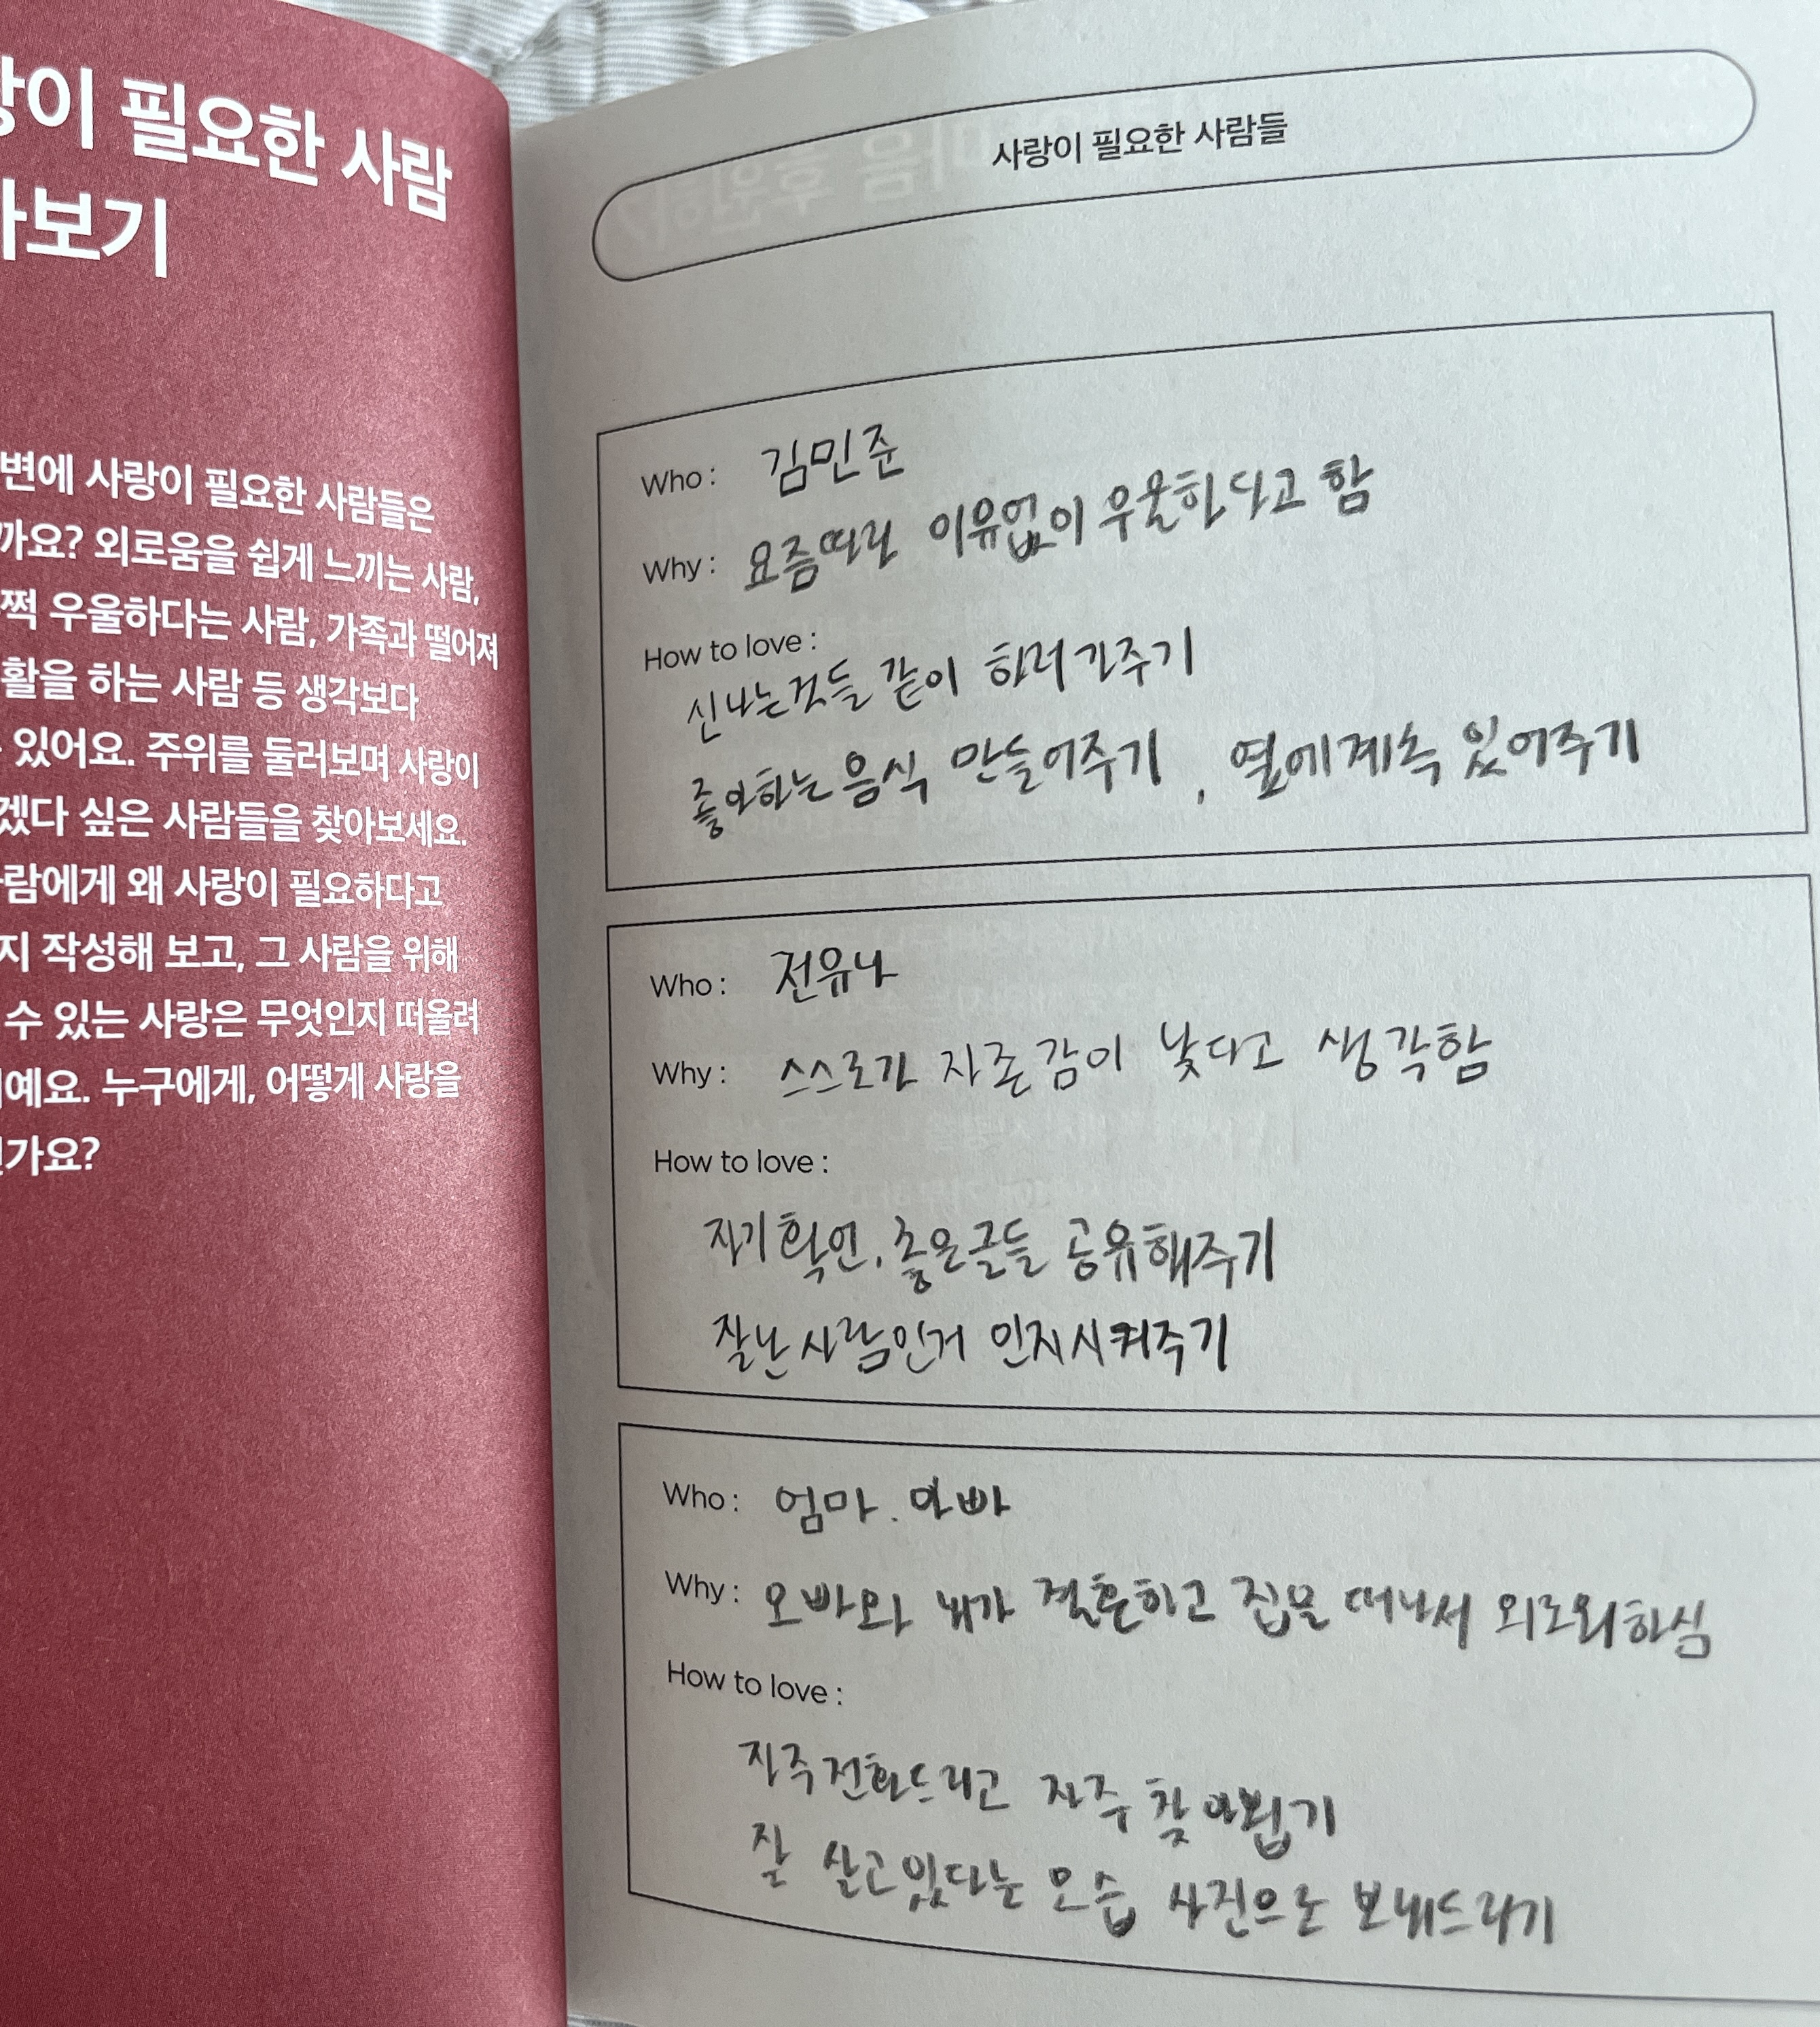 랑이 필요한 사람
아보기
변에 사랑이 필요한 사람들은
까요? 외로움을 쉽게 느끼는 사람,
쩍 우울하다는 사람, 가족과 떨어져
활을 하는 사람 등 생각보다
있어요. 주위를 둘러보며 사랑이
겠다 싶은 사람들을 찾아보세요.
사람에게 왜 사랑이 필요하다고
지 작성해 보고, 그 사람을 위해
수 있는 사랑은 무엇인지 떠올려
거예요. 누구에게, 어떻게 사랑을
인가요?
사랑이 필요한 사람들
Who : 김민준
Why : 요즘따라 이유없이 우울한다고 함
How to love :
신나는것들 같이 하러 가주기
좋아하는 음식 만들어주기, 옆에 계속 있어주기
Who : 전유나
Why : 스스로가 자존감이 낮다고 생각함
How to love :
자기 확언, 좋은글들 공유해주기
잘난 사람인거 인지시켜주기
Who : 엄마. 아빠
Why : 오빠와 내가 결혼하고 집을 떠나서 외로워하심
How to love :
자주 전화드리고 자주 찾아뵙기
잘 살고있다는 모습 사진으로 보내드리기